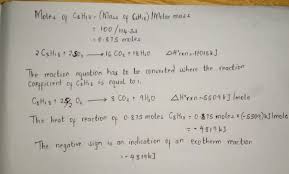 Moles of C8H18 = (Mass of C8H18)/Molar mass
= 100/114.22
= 0.875 moles
2 C8H18 + 25O2 → 16 CO2 + 18H2O ΔH°rxn = -11018kJ
The reaction equation has to be converted where the reaction
coefficient of C8H18 is equal to 1.
C8H18 + 25/2 O2 → 8 CO2 + 9H2O ΔH°rxn = -5509kJ/mole
The heat of reaction of 0.875 moles C8H18 = 0.875 moles × (-5509)kJ/mole
= -4819kJ
The negative sign is an indication of an exotherm reaction
= -4819kJ